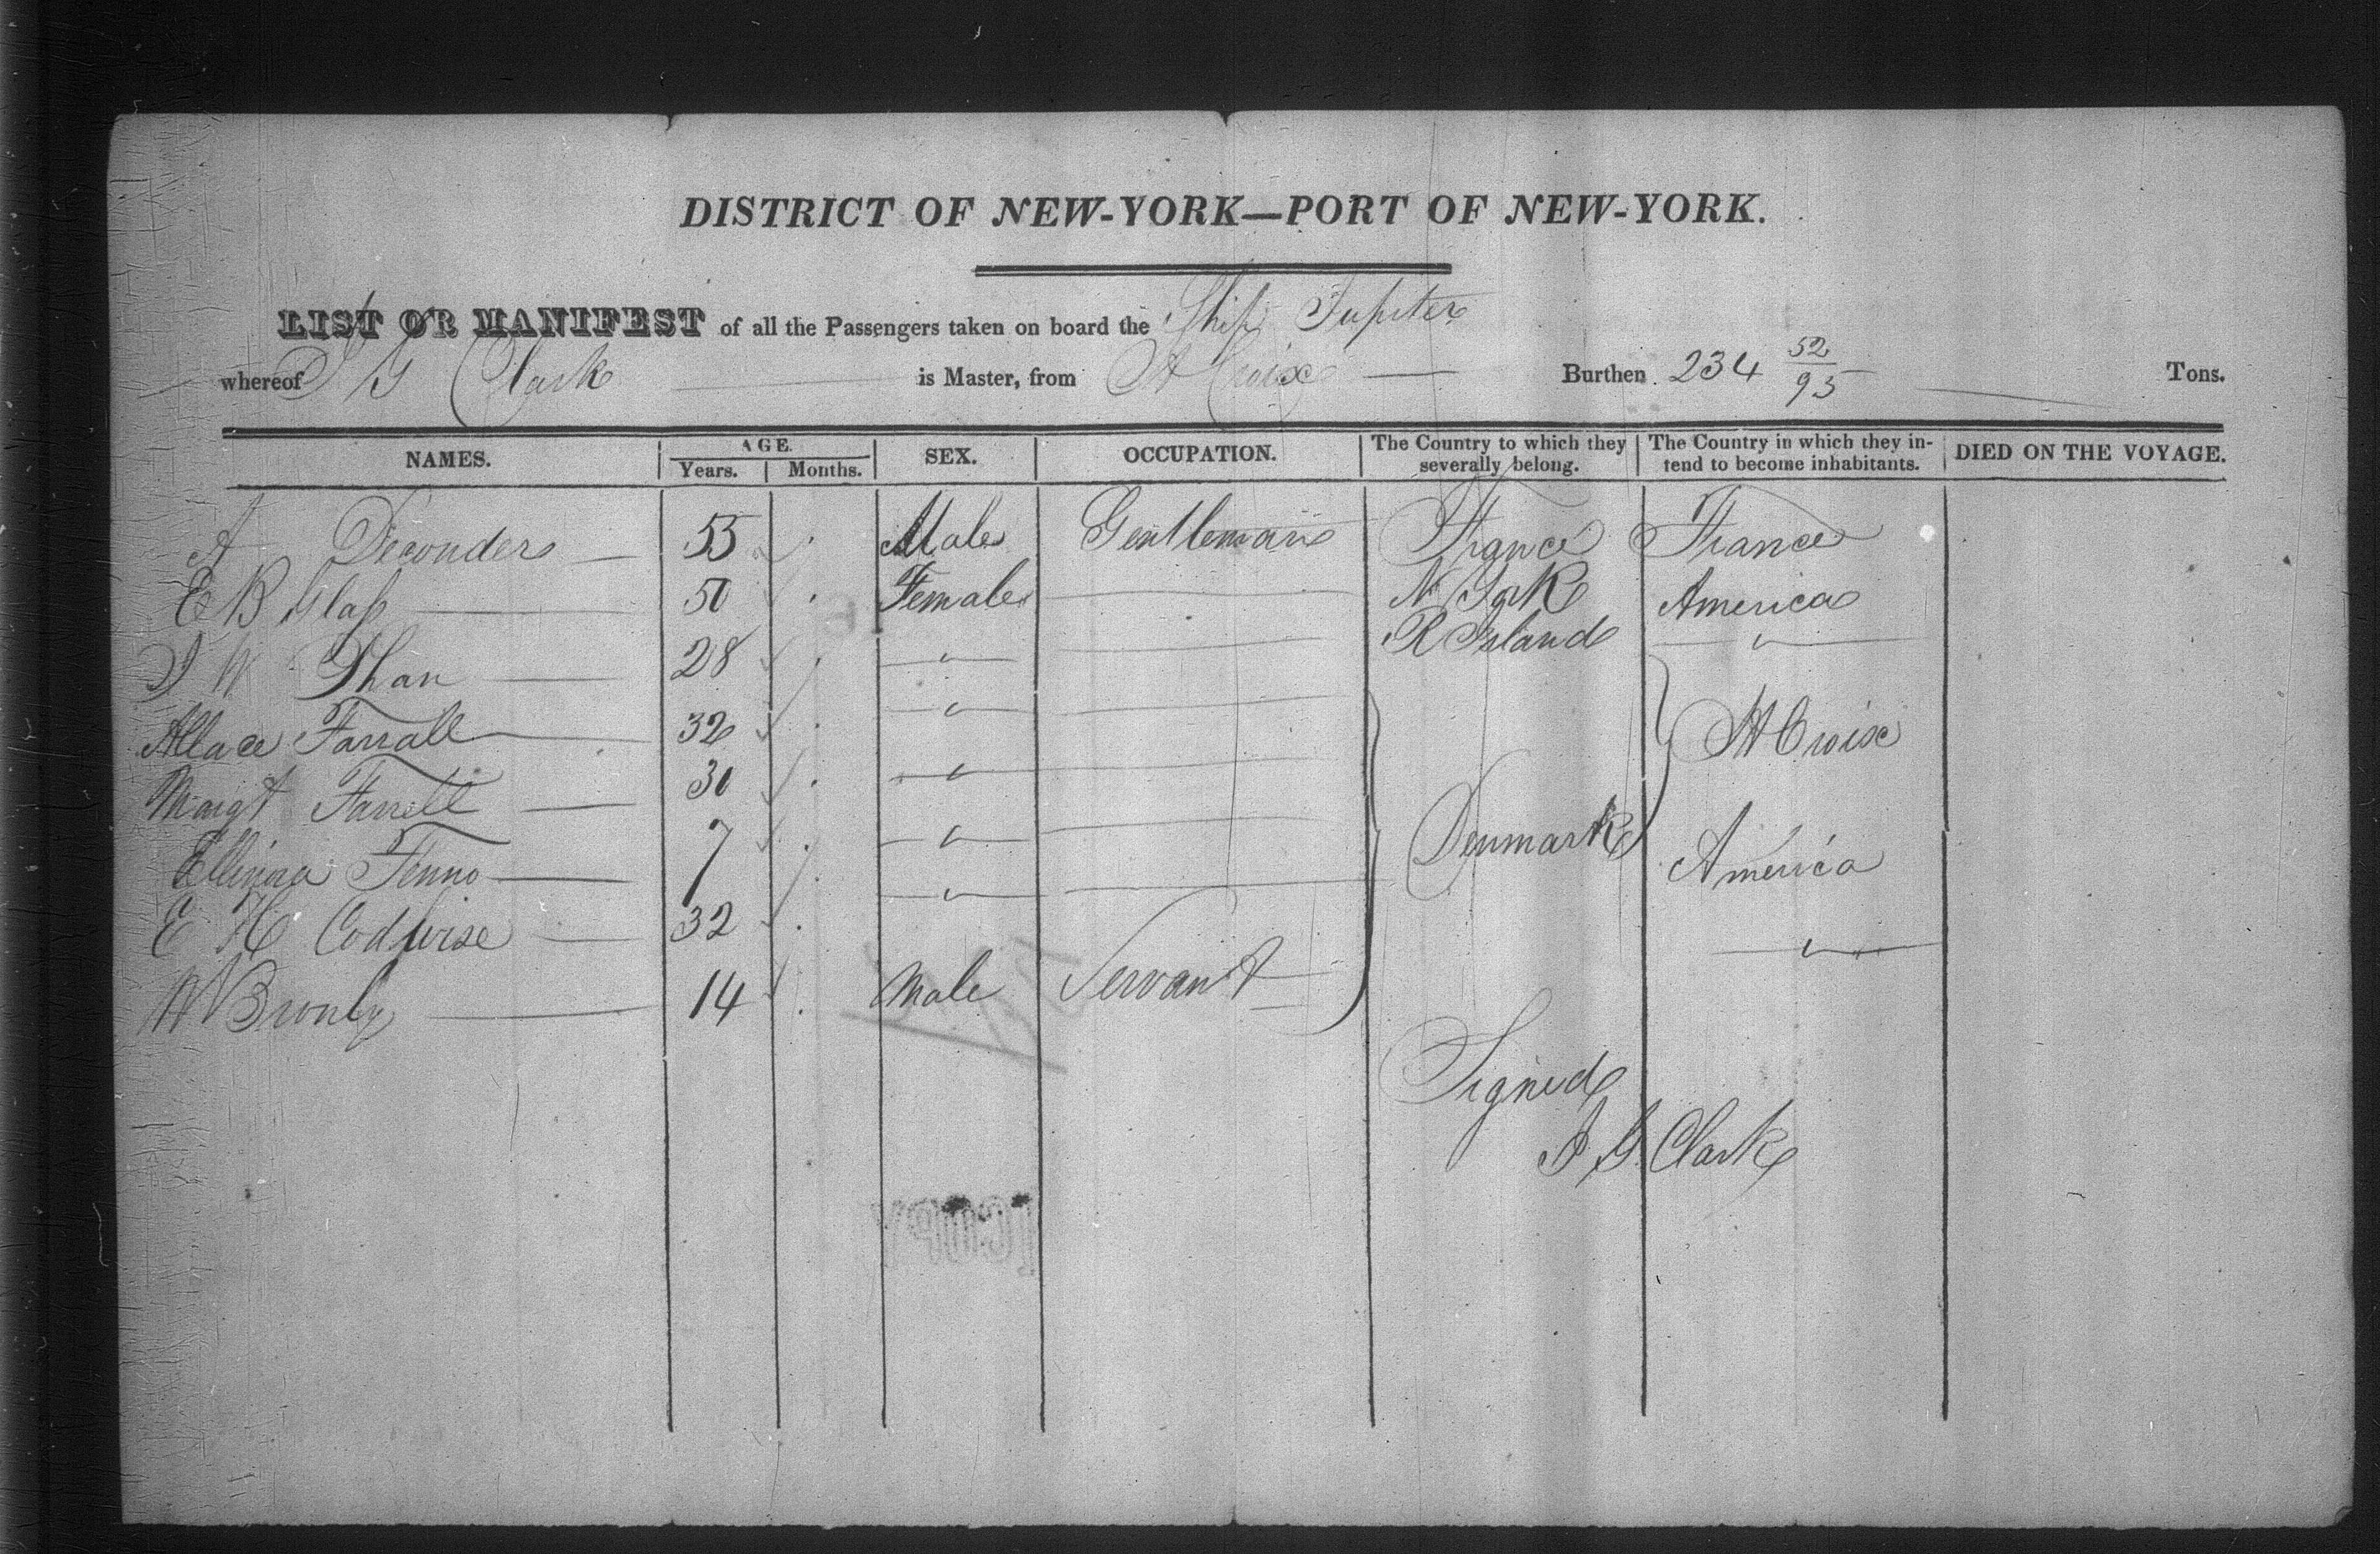 DISTRICT OF NEW-YORK—PORT OF NEW-YORK.
LIST OR MANIFEST of all the Passengers taken on board the Ship Jupiter
whereof J G Clark is Master, from St Croix Burthen 234 52/95 Tons.
NAMES. AGE. Years. Months. SEX. OCCUPATION. The Country to which they severally belong. The Country in which they intend to become inhabitants. DIED ON THE VOYAGE.
A Deconder 55 Male Gentleman France France
E B Glass 50 Female N York America
J W 28 " R Island "
Allace Farrall 32 "
Margt Farrell 30 " St Croix
Ellinra Fenno 7 " Denmark America
E H Codwise 32 " "
W 14 Male Servant
Signed
J G Clark
COPY